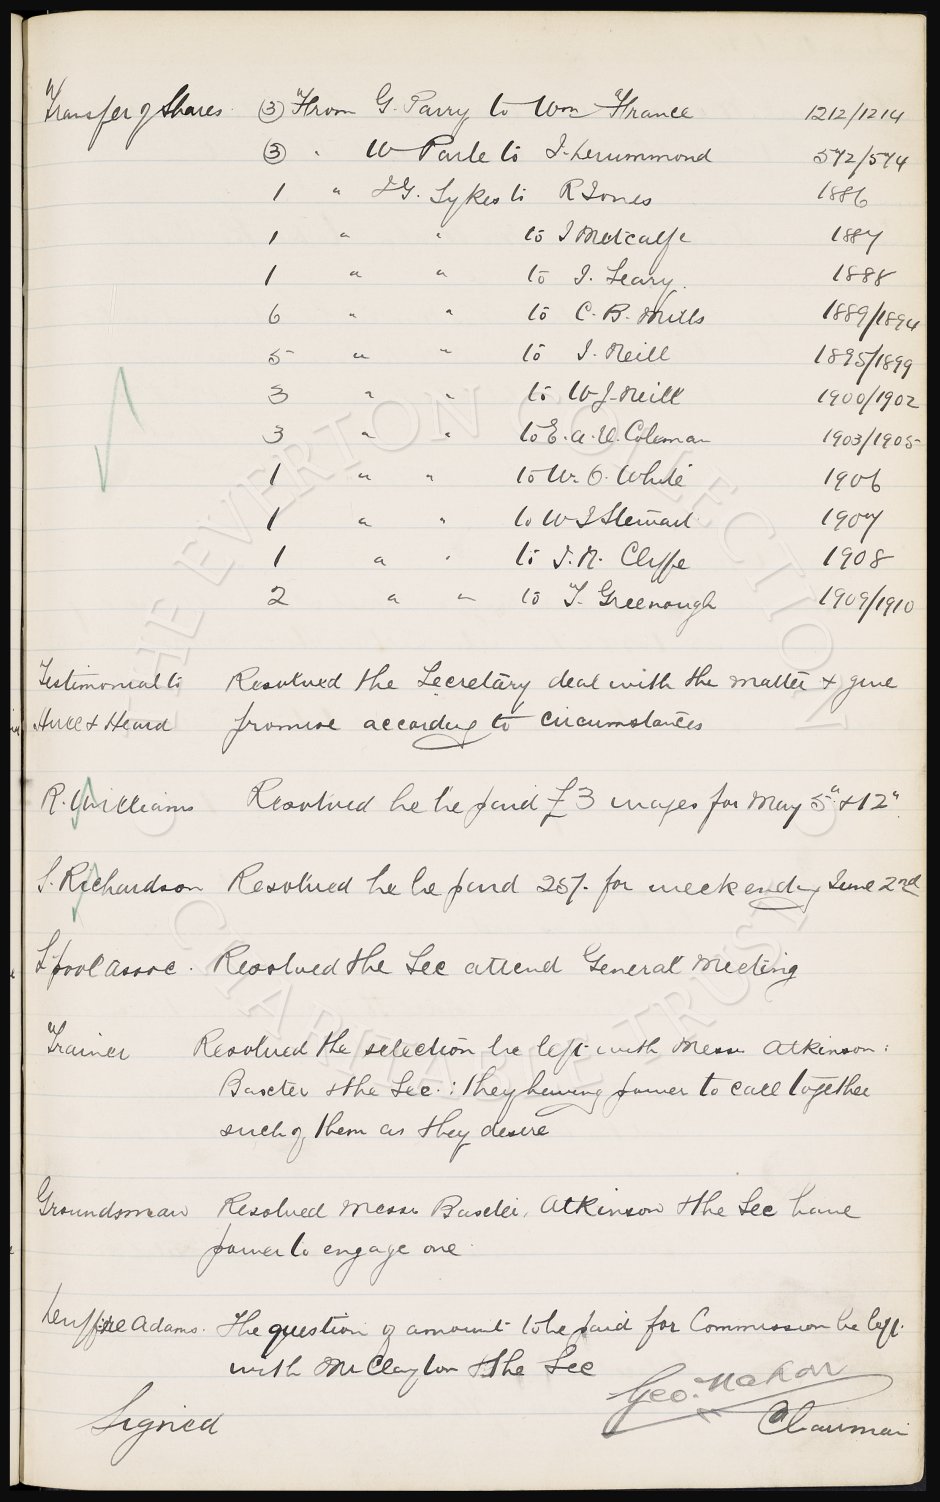 Transfer of Shares (3) From G. Parry to Wm France 1212/1214
(3) " W Parle to J. Drummond 572/574
1 " J G. Sykes to R Jones 1886
1 " " to J Metcalfe 1887
1 " " to J. Leary. 1888
6 " " to C. B. Mills 1889/1894
5 " " to J. Neill 1895/1899
3 " " to W J. Neill 1900/1902
3 " " to E. A. U. Coleman 1903/1905
1 " " to Wm O. White 1906
1 " " to W J Stewart 1907
1 " " to J. N. Cliffe 1908
2 " " to T. Greenough 1909/1910
Testimonial to Resolved the Secretary deal with the matter & give
Hill & Heard promise according to circumstances
R. Williams Resolved he be paid £3 wages for May 5" & 12"
S. Richardson Resolved he be paid 25/- for week ending June 2nd
L'pool Assoc. Resolved the Sec attend General Meeting
Trainer Resolved the selection be left with Messrs Atkinson:
Baxter & the Sec.: they having power to call together
such of them as they desire
Groundsman Resolved Messrs Baxter, Atkinson & the Sec have
power to engage one
Adams. The question of amount to be paid for Commission be left
with Mr Clayton & the Sec
Signed Geo. Mahon
Chairman
THE EVERTON COLLECTION
CHARITABLE TRUST